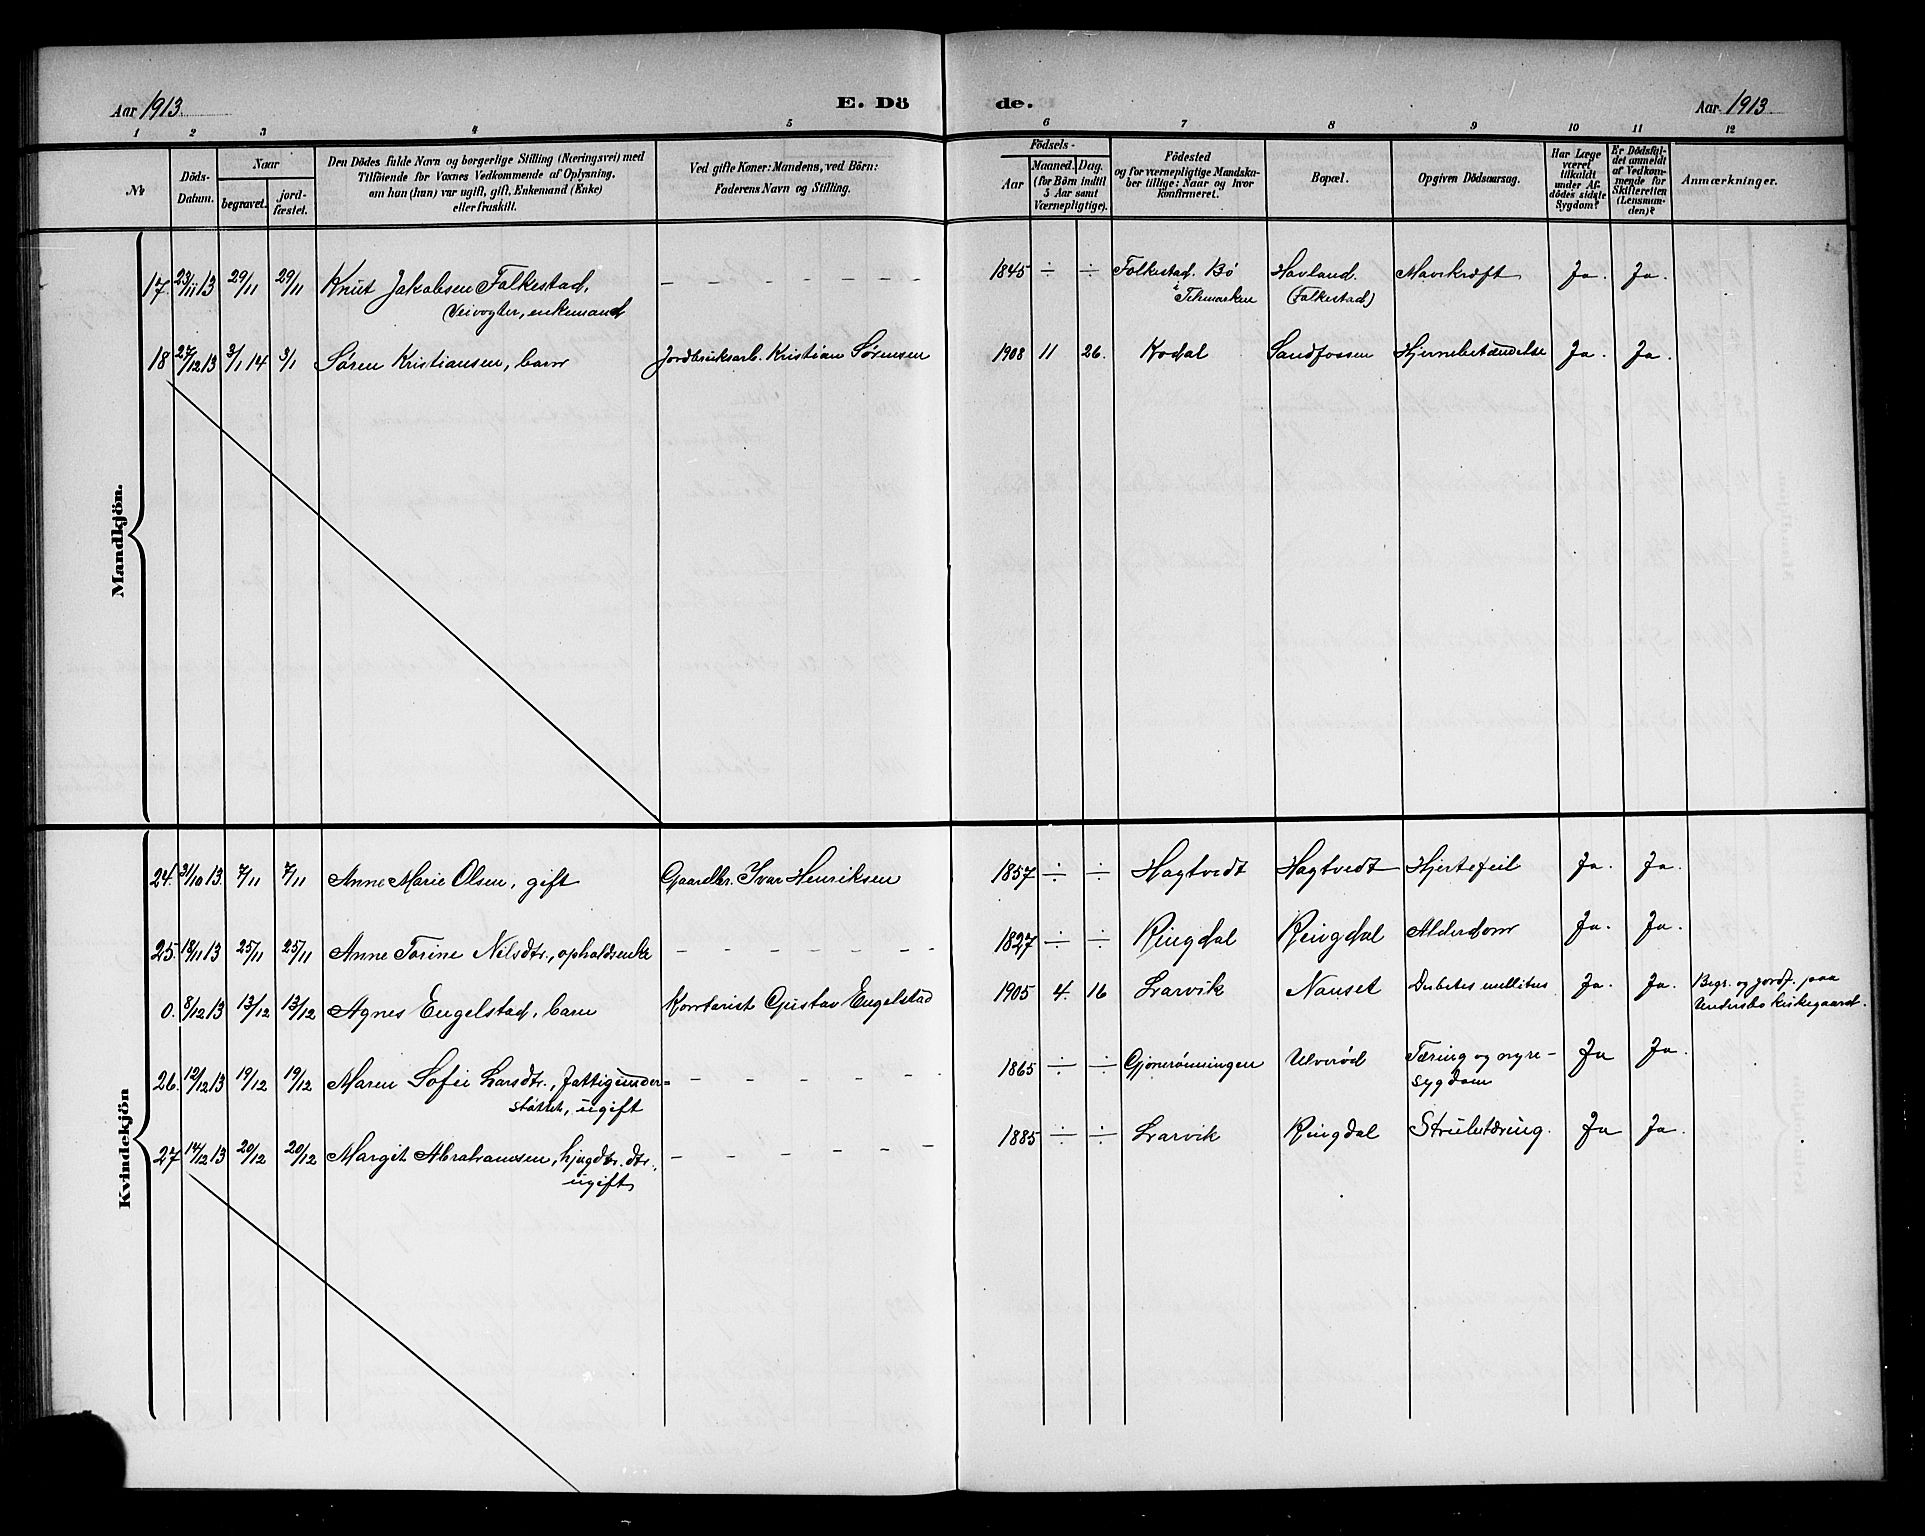 Aar 1913 E. Dö de. Aar 1913
1 2 3 4 5 6 7 8 9 10 11 12
№
Döds-Datum.
Naar
begravet.
jord-fæstet.
Den Dödes fulde Navn og borgerlige Stilling (Næringsvei) med
Tilföiende for Voxnes Vedkommende af Oplysning,
om hun (han) var ugift, gift, Enkemand (Enke)
eller fraskilt.
Ved gifte Koner: Mandens, ved Börn:
Faderens Navn og Stilling.
Födsels-
Aar
Maaned. Dag.
(for Börn indtil
5 Aar samt
Værnepligtige).
Födested
og for værnepligtige Mandska-
ber tillige: Naar og hvor
konfirmeret.
Bopæl.
Opgiven Dödsaarsag.
Har Læge
været
tilkaldt
under Af-
dödes sidste
Sygdom?
Er Dödsfal-
det anmeldt
af Vedkom-
mende for
Skifteretten
(Lensman-
den)?
Anmærkninger.
Mandkjön.
17. 23/11 13 29/11 29/11 Knut Jakobsen Falkestad, – – – – – – 1845 ÷ ÷ Folkestad. Bö Havland. Mavekræft Ja. Ja.
Veivogter, enkemand i Telemarken (Falkestad)
18 27/12 13 3/1 14 3/1 Søren Kristiansen, barn Jordbruksarb. Kristian Sørensen 1908 11 26. Kodal Sandfossen Hjernebetændelse Ja. Ja.
Kvindekjön
24. 31/10 13. 7/11 7/11 Anne Marie Olsen, gift Gaardbr. Ivar Henriksen 1857 ÷ ÷ Hagtvedt Hagtvedt Hjertefeil Ja. Ja.
25. 18/11 13 25/11 25/11 Anne Torine Nilsdtr., opholdsenke – – – – – – 1827 ÷ ÷ Ringdal Ringdal Alderdom Ja. Ja.
0. 8/12 13 13/12 13/12 Agnes Engelstad, barn Kontorist Gustav Engelstad 1905 4. 16 Larvik Nanset Diabetes mellitus Ja. Ja. Begr. og jordf. paa
Undersbo kirkegaard.
26. 12/12 13 19/12 19/12 Maren Sofie Larsdtr., fattigunder= – – – – – 1865 ÷ ÷ Gjonerønningen Ulverød Tæring og nyre-
støttet, ugift sygdom Ja Ja.
27 14/12 13 20/12 20/12 Margit Abrahamsen, hjugdtr. dtr., – – – – – – 1885 ÷ ÷ Larvik Ringdal Strubetæring. Ja Ja.
ugift